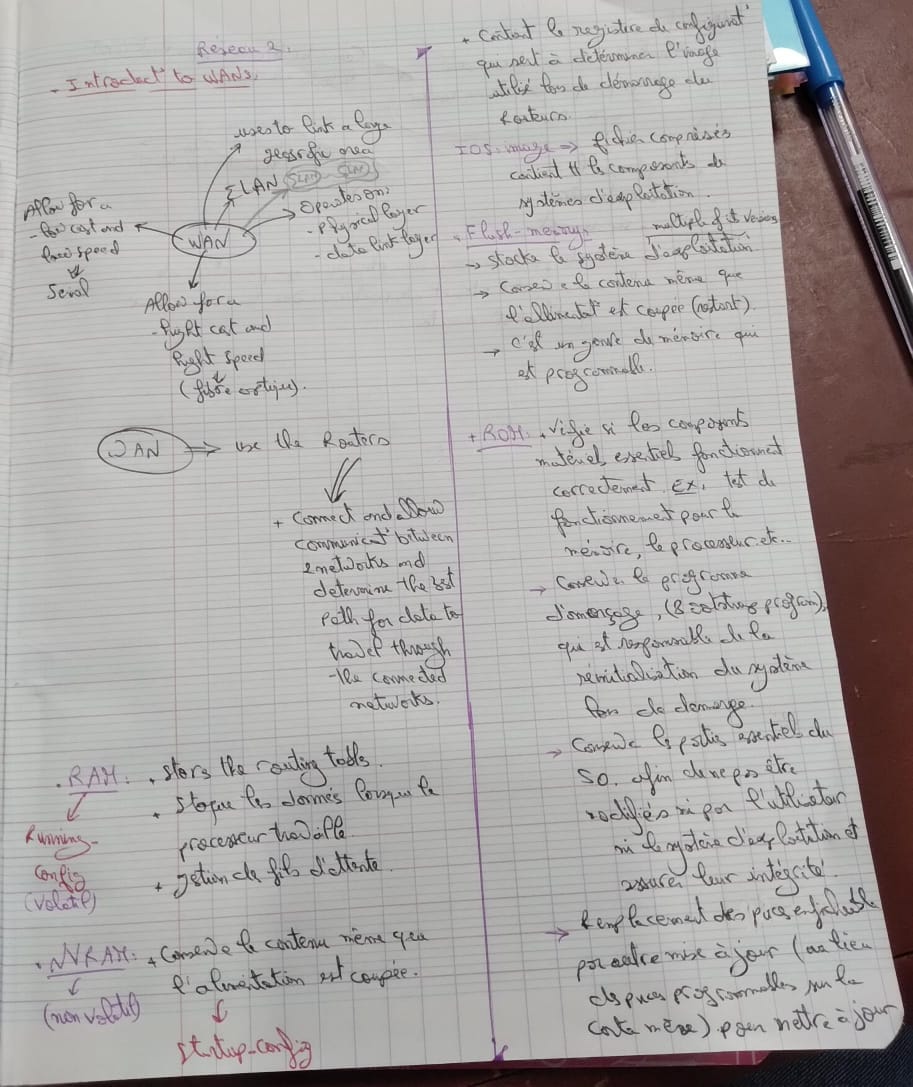 Réseau 2.
- Introduct° to WANs.
uses to link a large
geografic area
LAN
Operates on:
- physical layer
- data link layer
WAN
Allow for a
- low cost and
low speed
Serial
Allow for a
- hight cost and
hight speed
(fibre optique).
WAN → use the Routers
+ Connect and allow
communicat° bitween
2 networks and
determine the bst
path for data to
travel through
the connected
networks.
. RAM : . stors the routing tools.
. Stoque les donnés lorsque le
processeur travaille
+ gestion de fils d'attente.
Running-
Config
(volatil)
. NVRAM : + Conserve le contenu même que
l'alimentation est coupée.
(non volatil)
startup-config
+ Contient le registre de configurat°
qui sert à déterminer l'image
utilisé lors de démarrage du
Routeurs.
IOS-image ⇒ fichier compressés
contient le composants de
systèmes d'exploitation.
. Flash-memory: multiple fit versions
→ stocke le système d'exploitation
→ Conserve le contenu même que
l'allimentat° et coupée (restart).
→ c'est un genre de mémoire qui
est programmable.
+ ROM : . Vérifie si les composants
matériels essentiels fonctionnent
correctement. Ex, test de
fonctionnement pour la
mémoire, le processeur etc..
→ Conserve le programme
d'amorçage, (Bootstrap program),
qui est responsable de la
réinitialisation du système
lors de demarage.
→ Conserve les parties essentiel du
SO. afin de ne pas être
modifiés ni par l'utilisator
ni le système d'exploitation et
assurer leur intégrité.
→ Remplacement des puces enfichable
par autre mise à jour (au lieu
des puces programmables sur la
carte mère) pour mettre à jour